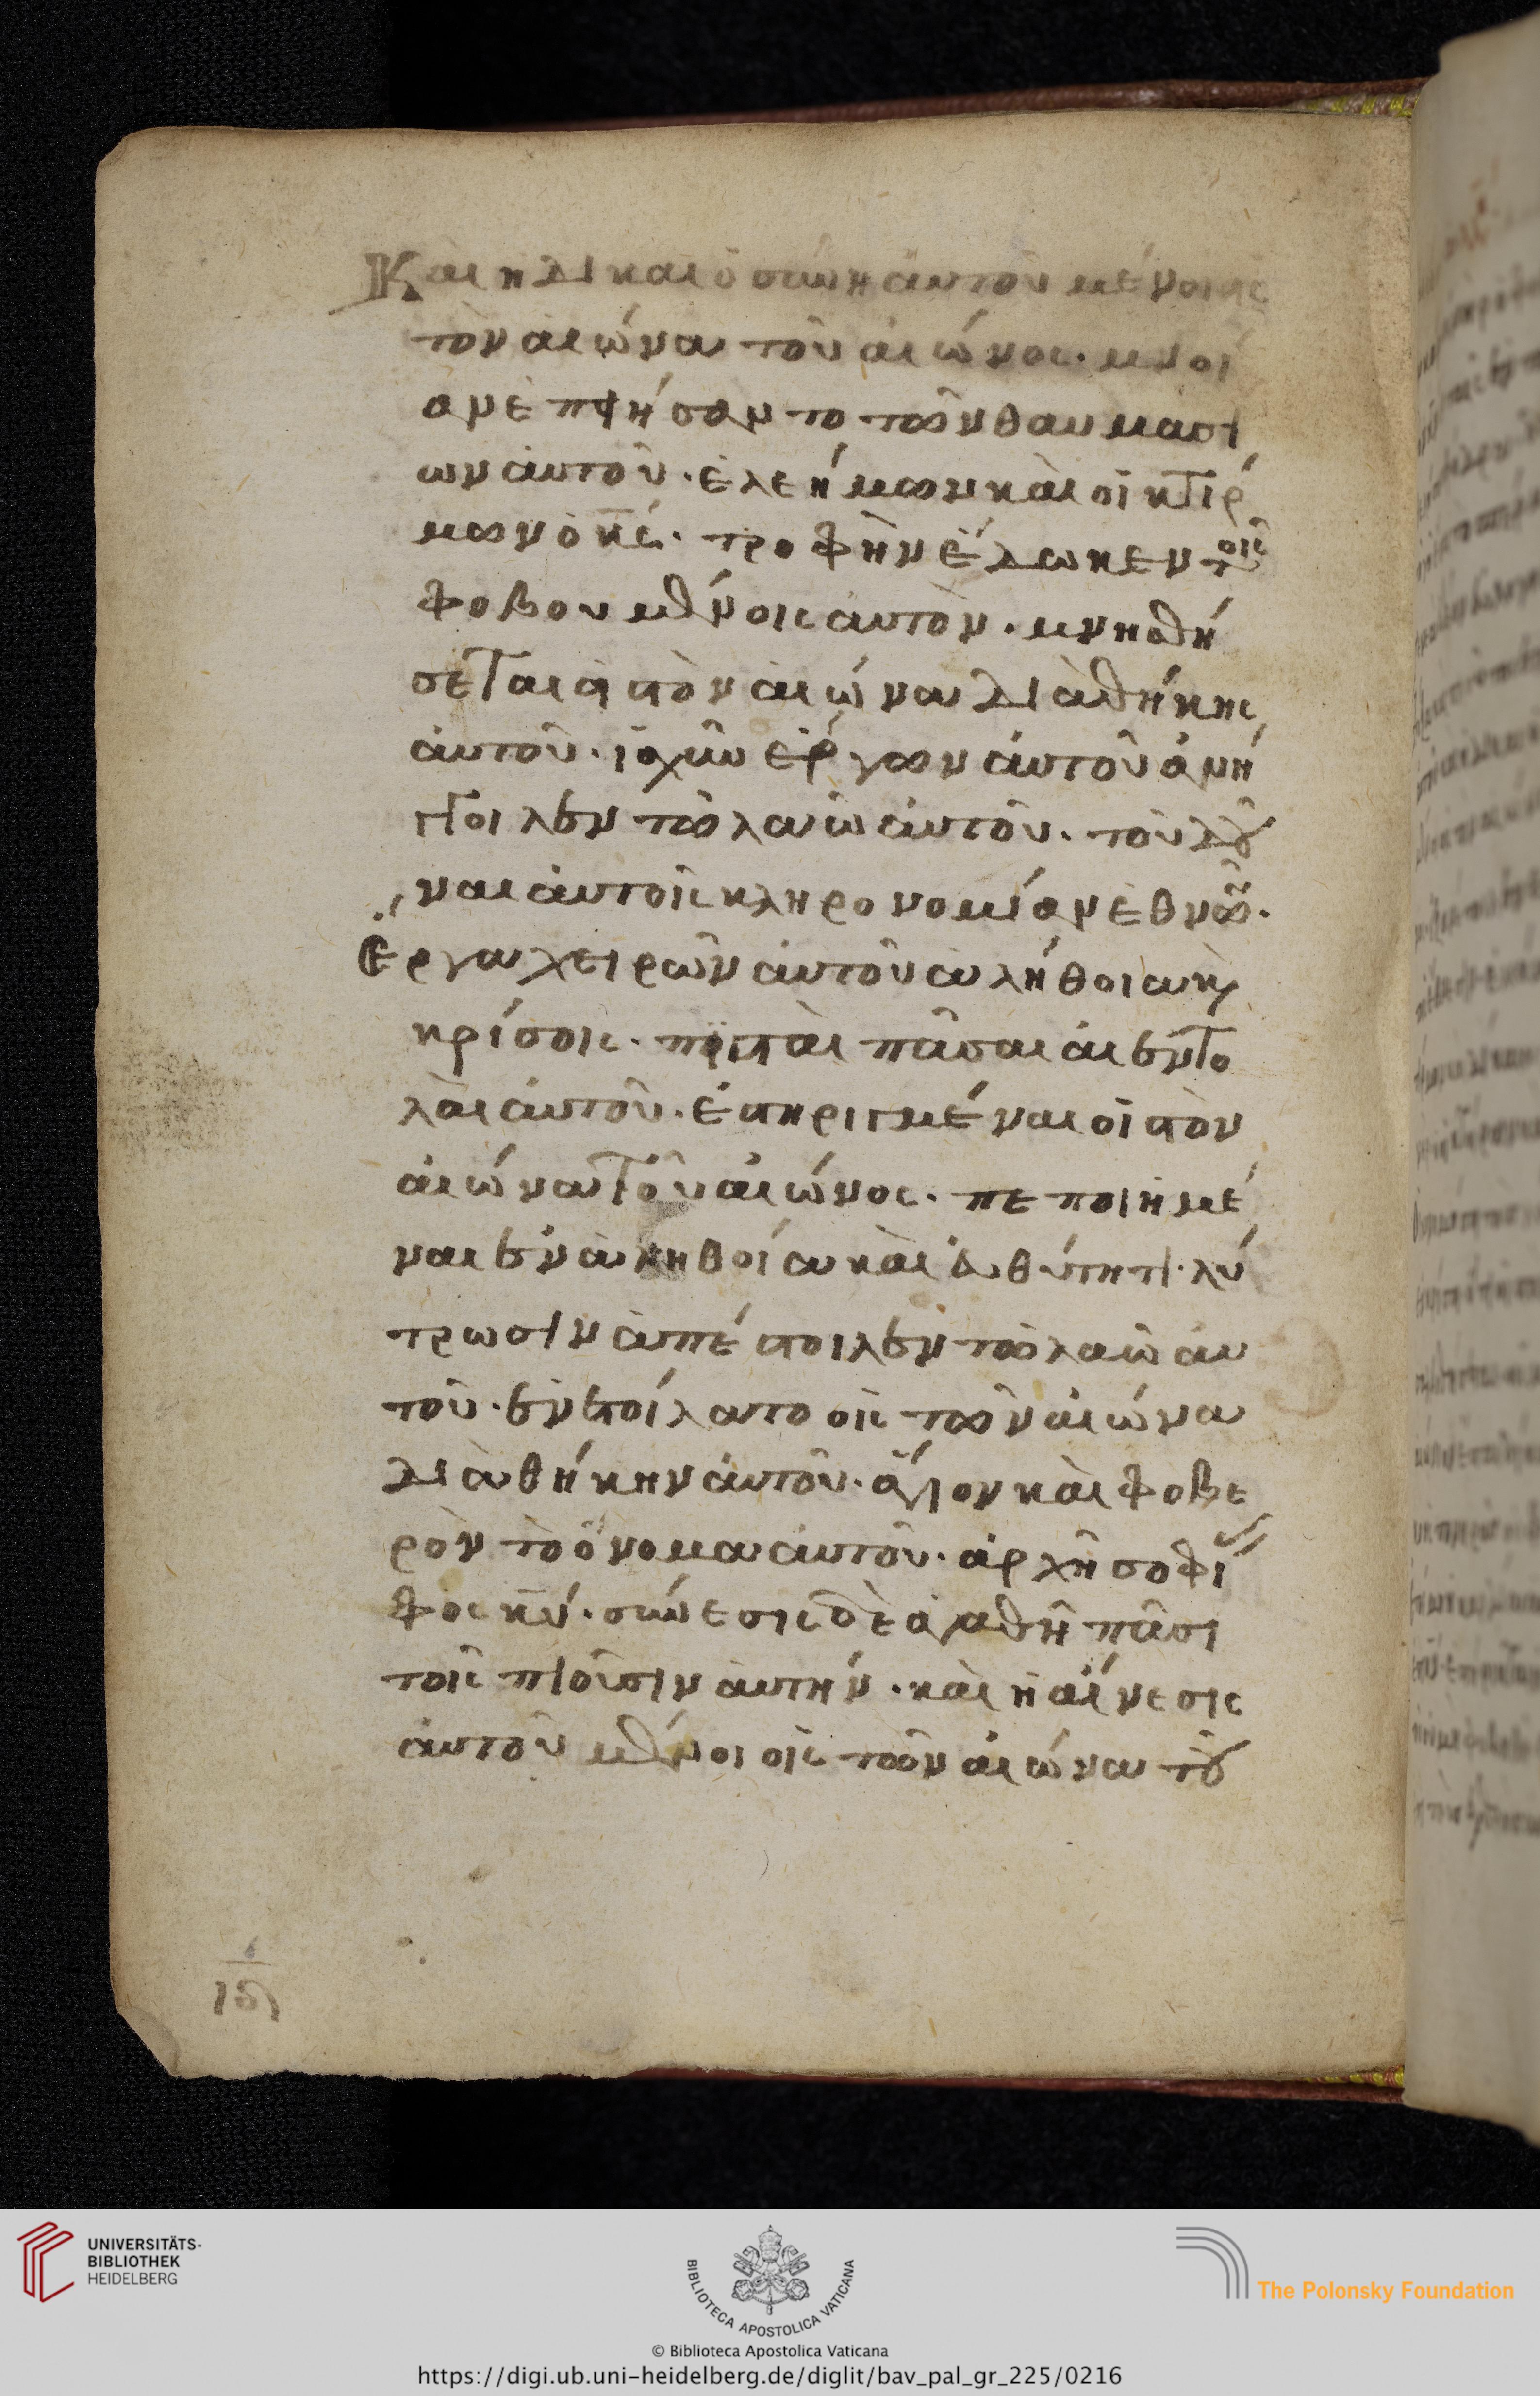 Καὶ ἡ δικαιοσύνη αὐτοῦ μένει εἰς
τὸν αἰῶνα τοῦ αἰῶνος. μνεί
αν ἐποιήσαντο τῶν θαυμασί
ων αὐτοῦ. ἐλεήμων καὶ οἰκτίρ
μων ὁ κς̅. τροφὴν ἔδωκεν τοῖς
φοβουμένοις αὐτὸν. μνησθή
σεται εἰς τὸν αἰῶνα διαθήκης
αὐτοῦ. ἰσχὺν ἔργων αὐτοῦ ἀνή
γγειλεν τῶ λαῶ αὐτοῦ. τοῦ δοῦ
ναι αὐτοῖς κληρονομίαν ἐθνῶν.
Ἔργα χειρῶν αὐτοῦ ἀλήθεια κ(αὶ)
κρίσεις. πισταὶ πᾶσαι αἱ ἐντο
λαὶ αὐτοῦ. ἐστηριγμέναι εἰς τὸν
αἰῶνα τοῦ αἰῶνος. πεποιημέ
ναι ἐν ἀληθεία καὶ εὐθύτητι. λύ
τρωσιν ἀπέστειλεν τῶ λαῶ αὐ
τοῦ. ἐνετείλατο εἰς τῶν αἰῶνα
διαθήκην αὐτοῦ. ἅγιον καὶ φοβε
ρὸν τὸ ὄνομα αὐτοῦ. ἀρχὴ σοφί(ας)
φόβος κυ̅. σύνεσις δὲ ἀγαθὴ πᾶσι
τοῖς ποιοῦσιν αὐτήν. καὶ ἡ αἴνεσις
αὐτοῦ μένει εἰς τῶν αἰῶνα τοῦ
UNIVERSITÄTS-
BIBLIOTHEK
HEIDELBERG
BIBLIOTECA APOSTOLICA VATICANA
The Polonsky Foundation
© Biblioteca Apostolica Vaticana
https://digi.ub.uni-heidelberg.de/diglit/bav_pal_gr_225/0216